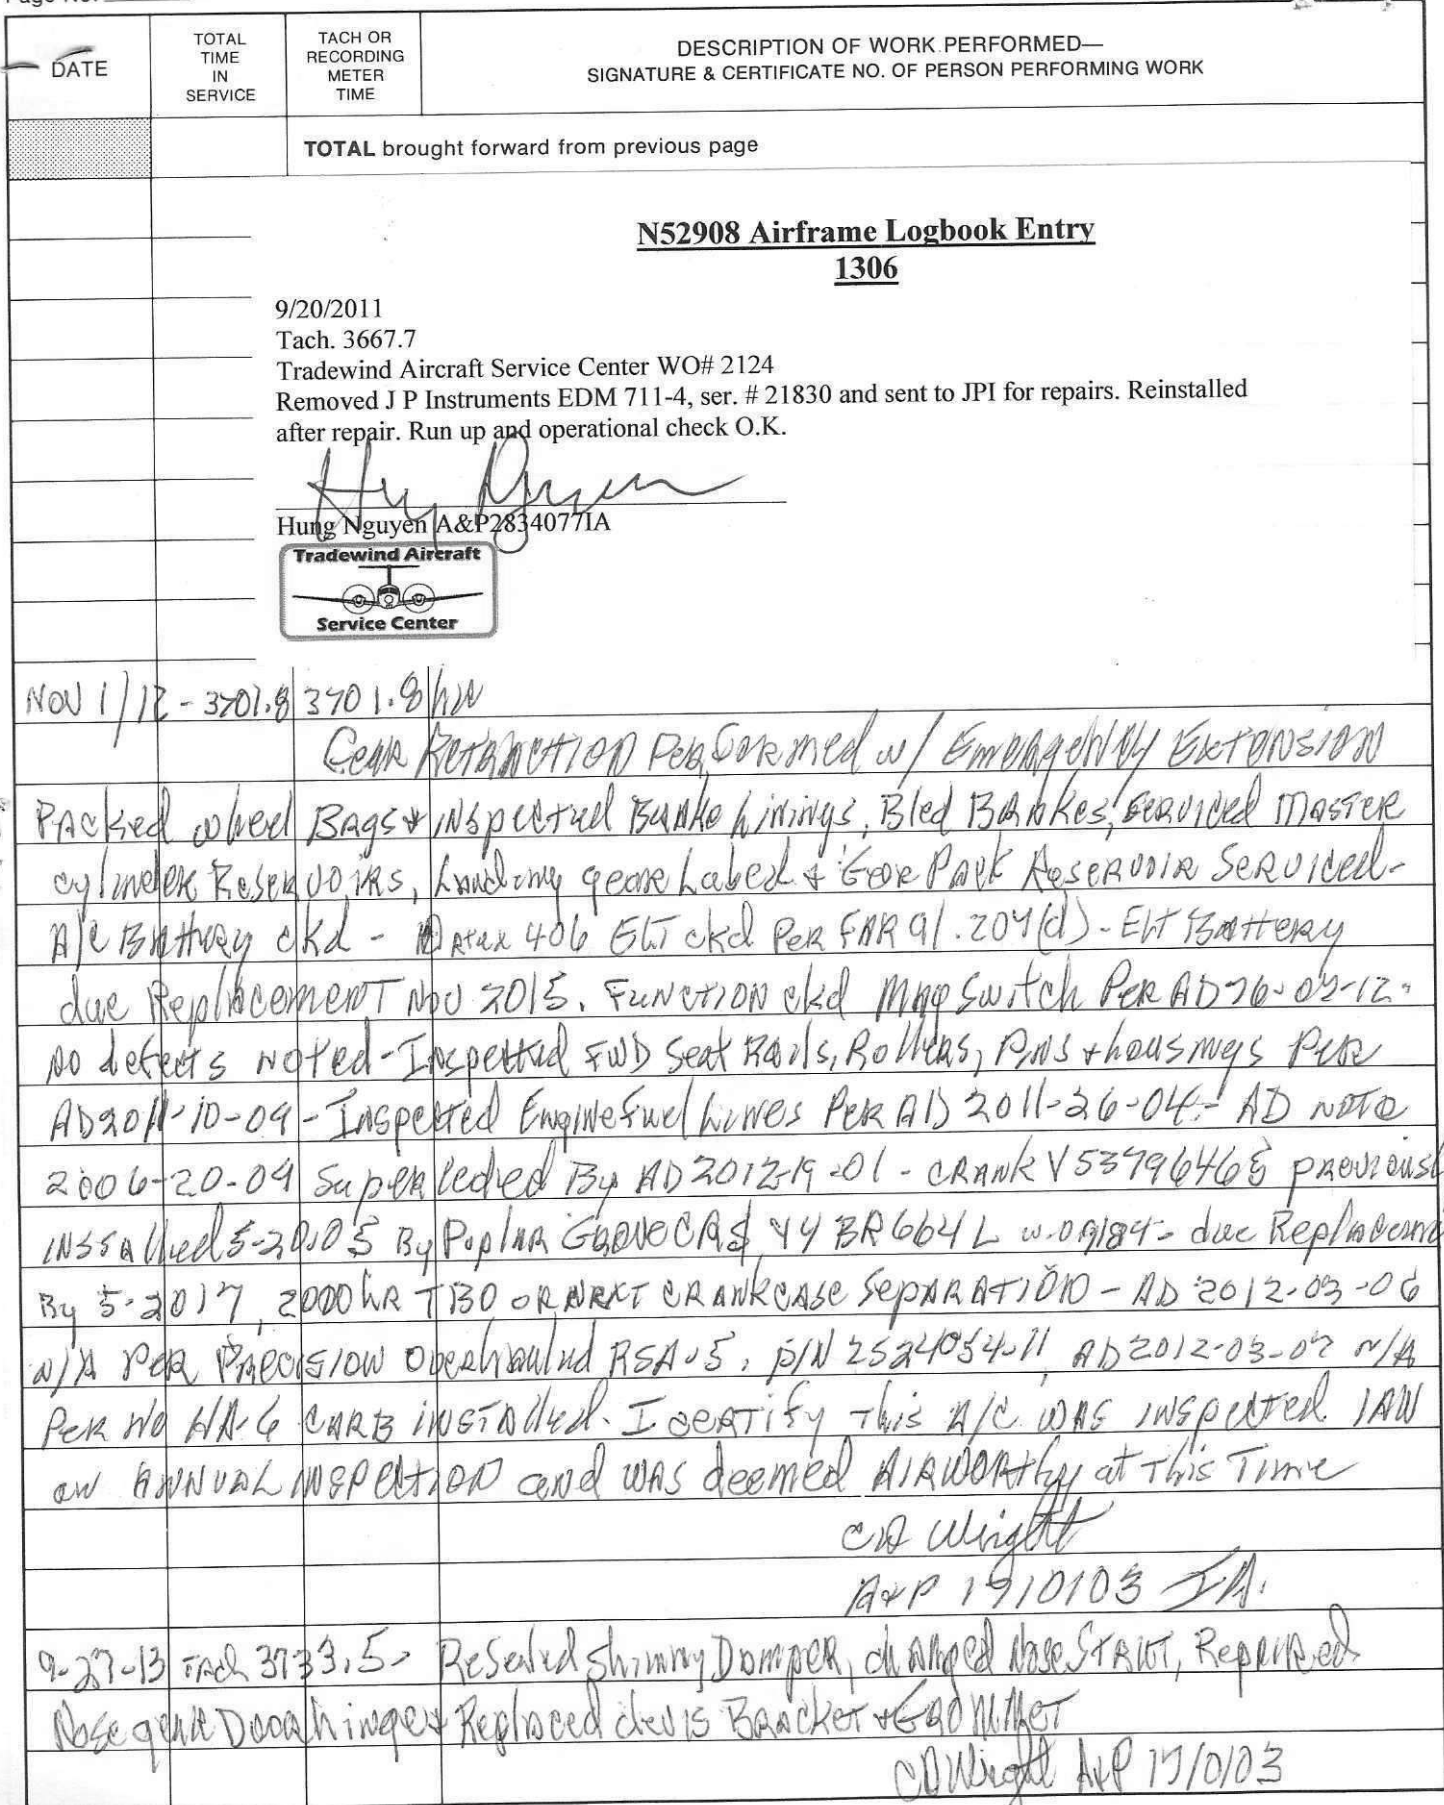 Page No.
DATE
TOTAL TIME IN SERVICE
TACH OR RECORDING METER TIME
DESCRIPTION OF WORK PERFORMED—
SIGNATURE & CERTIFICATE NO. OF PERSON PERFORMING WORK
TOTAL brought forward from previous page
N52908 Airframe Logbook Entry
1306
9/20/2011
Tach. 3667.7
Tradewind Aircraft Service Center WO# 2124
Removed J P Instruments EDM 711-4, ser. # 21830 and sent to JPI for repairs. Reinstalled
after repair. Run up and operational check O.K.
Hung Nguyen A&P2834077IA
Tradewind Aircraft
Service Center
NOV 1/12 - 3701.8 3701.8
Gear Retraction Performed w/ Emergency Extension
Packed wheel & inspected Brake Linings, Bled Brakes, Serviced Master
cylinder Reservoirs, Landing gear Lubed & Gear Pack Reservoir Serviced-
A/C Battery ckd - Artex 406 ELT ckd Per FAR 91.207(d) - ELT Battery
due Replacement Nov 2015. Function ckd Mag Switch Per AD 76-07-12.
No defects noted - Inspected FWD Seat Rails, Rollers, Pins & housings Per
AD 2011-10-09 - Inspected Engine Fuel Lines Per AD 2011-26-04 - AD note
2006-20-09 Superceded By AD 2012-19-01 - CRANK previous
installed 5-20-05 By Poplar Grove due
By 5-2017, 2000 hR TBO OR NEXT CRANKCASE SEPARATION - AD 2012-03-06
N/A Per Precision Overhauled RSA-5, P/N AD 2012-03-07 N/A
Per No HA-6 CARB installed. I certify this A/C was inspected IAW
an ANNUAL INSPECTION and was deemed AIRWORTHY at This Time
CD Wright
A&P 1910103 IA.
9-27-13 Tach 3733.5 - Resealed Shimmy Damper, changed Nose Strut, Repaired
Nose gear Door hinge & Replaced clevis Bracket & GROMMET
CD Wright A&P 1910103